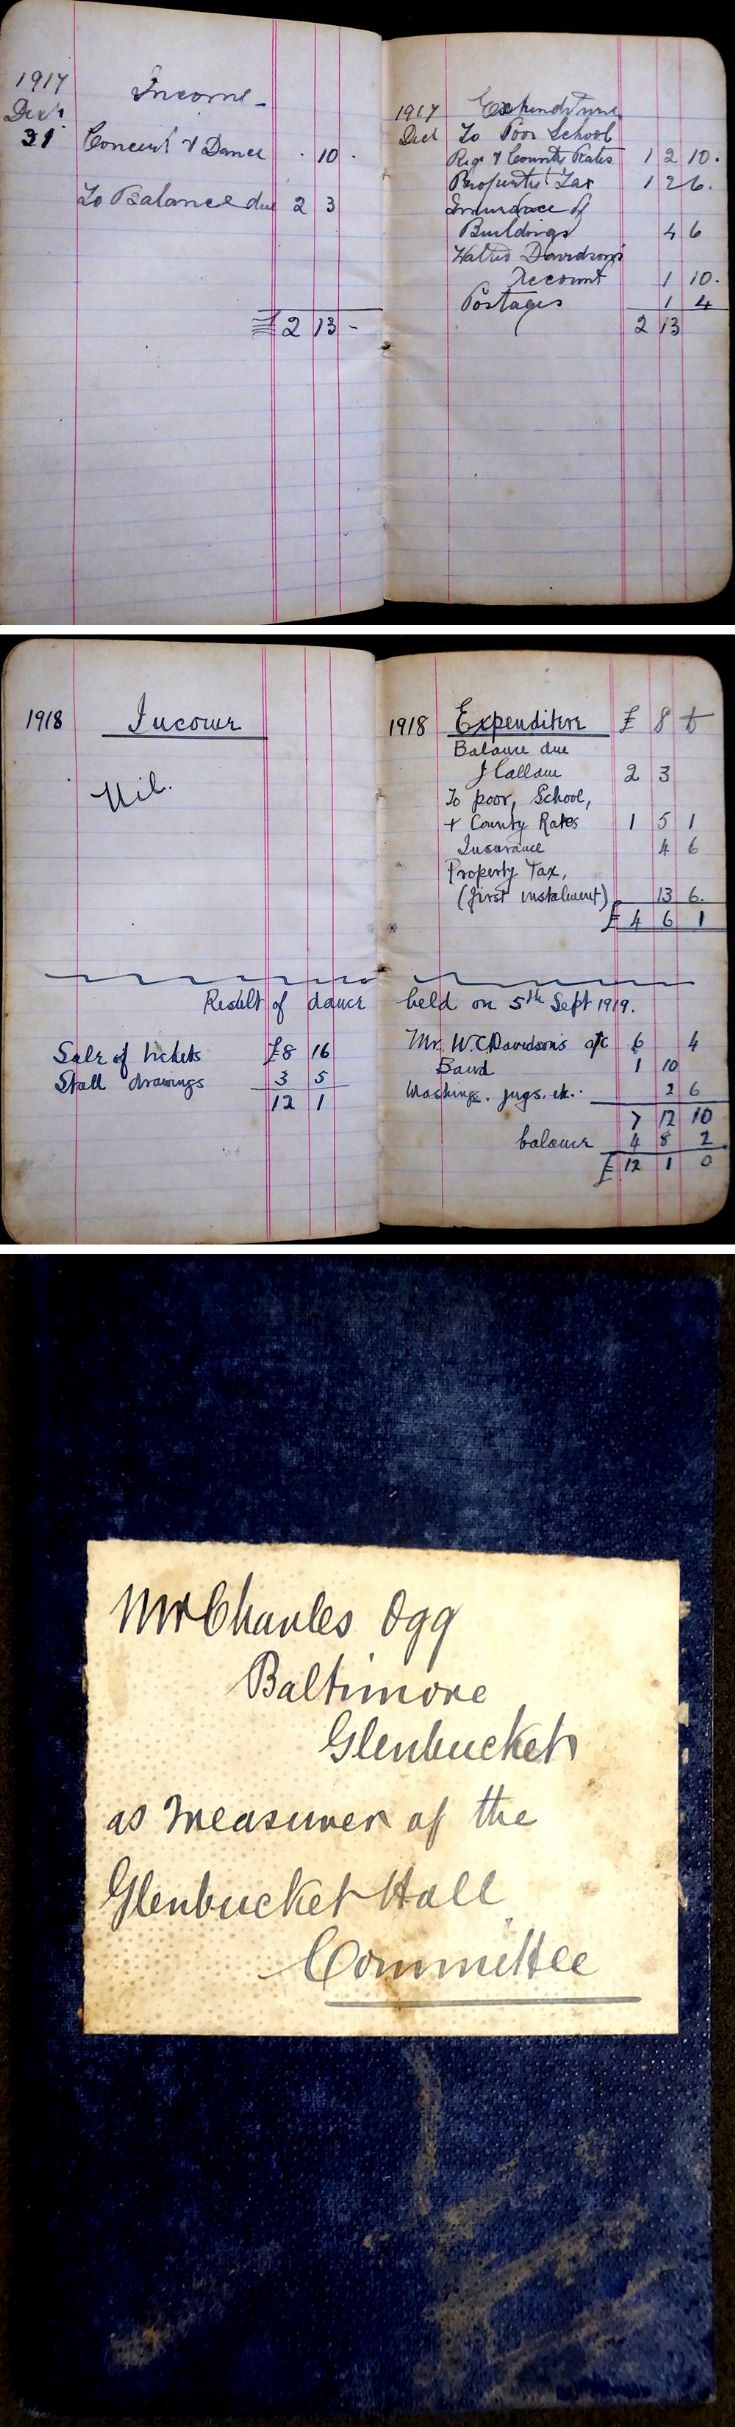 1917
Income -
Dec 31
Concert & Dance . 10 .
To Balance due 2 3
£ 2 13 -
1917 Expenditure
Dec To Poor School
Reg & County Rates 1 2 10.
Property Tax 1 2 6.
Insurance of
Buildings 4 6
Davidson's
Account 1 10.
Postages 1 4
2 13
1918 Income
Nil.
1918 Expenditure £ S D
Balance due
J Hallam 2 3
To poor, School,
+ County Rates 1 5 1
Insurance 4 6
Property Tax,
(first instalment) 13 6.
£ 4 6 1
Result of dance held on 5th Sept 1919.
Sale of tickets £8 16
Stall drawings 3 5
12 1
Mr. W.C. Davidson's a/c 6 4
Band 1 10
Washing. jugs. etc. 2 6
7 12 10
balance 4 8 2
£ 12 1 0
Mr Charles Ogg
Baltimore
Glenbucket
as Treasurer of the
Glenbucket Hall
Committee